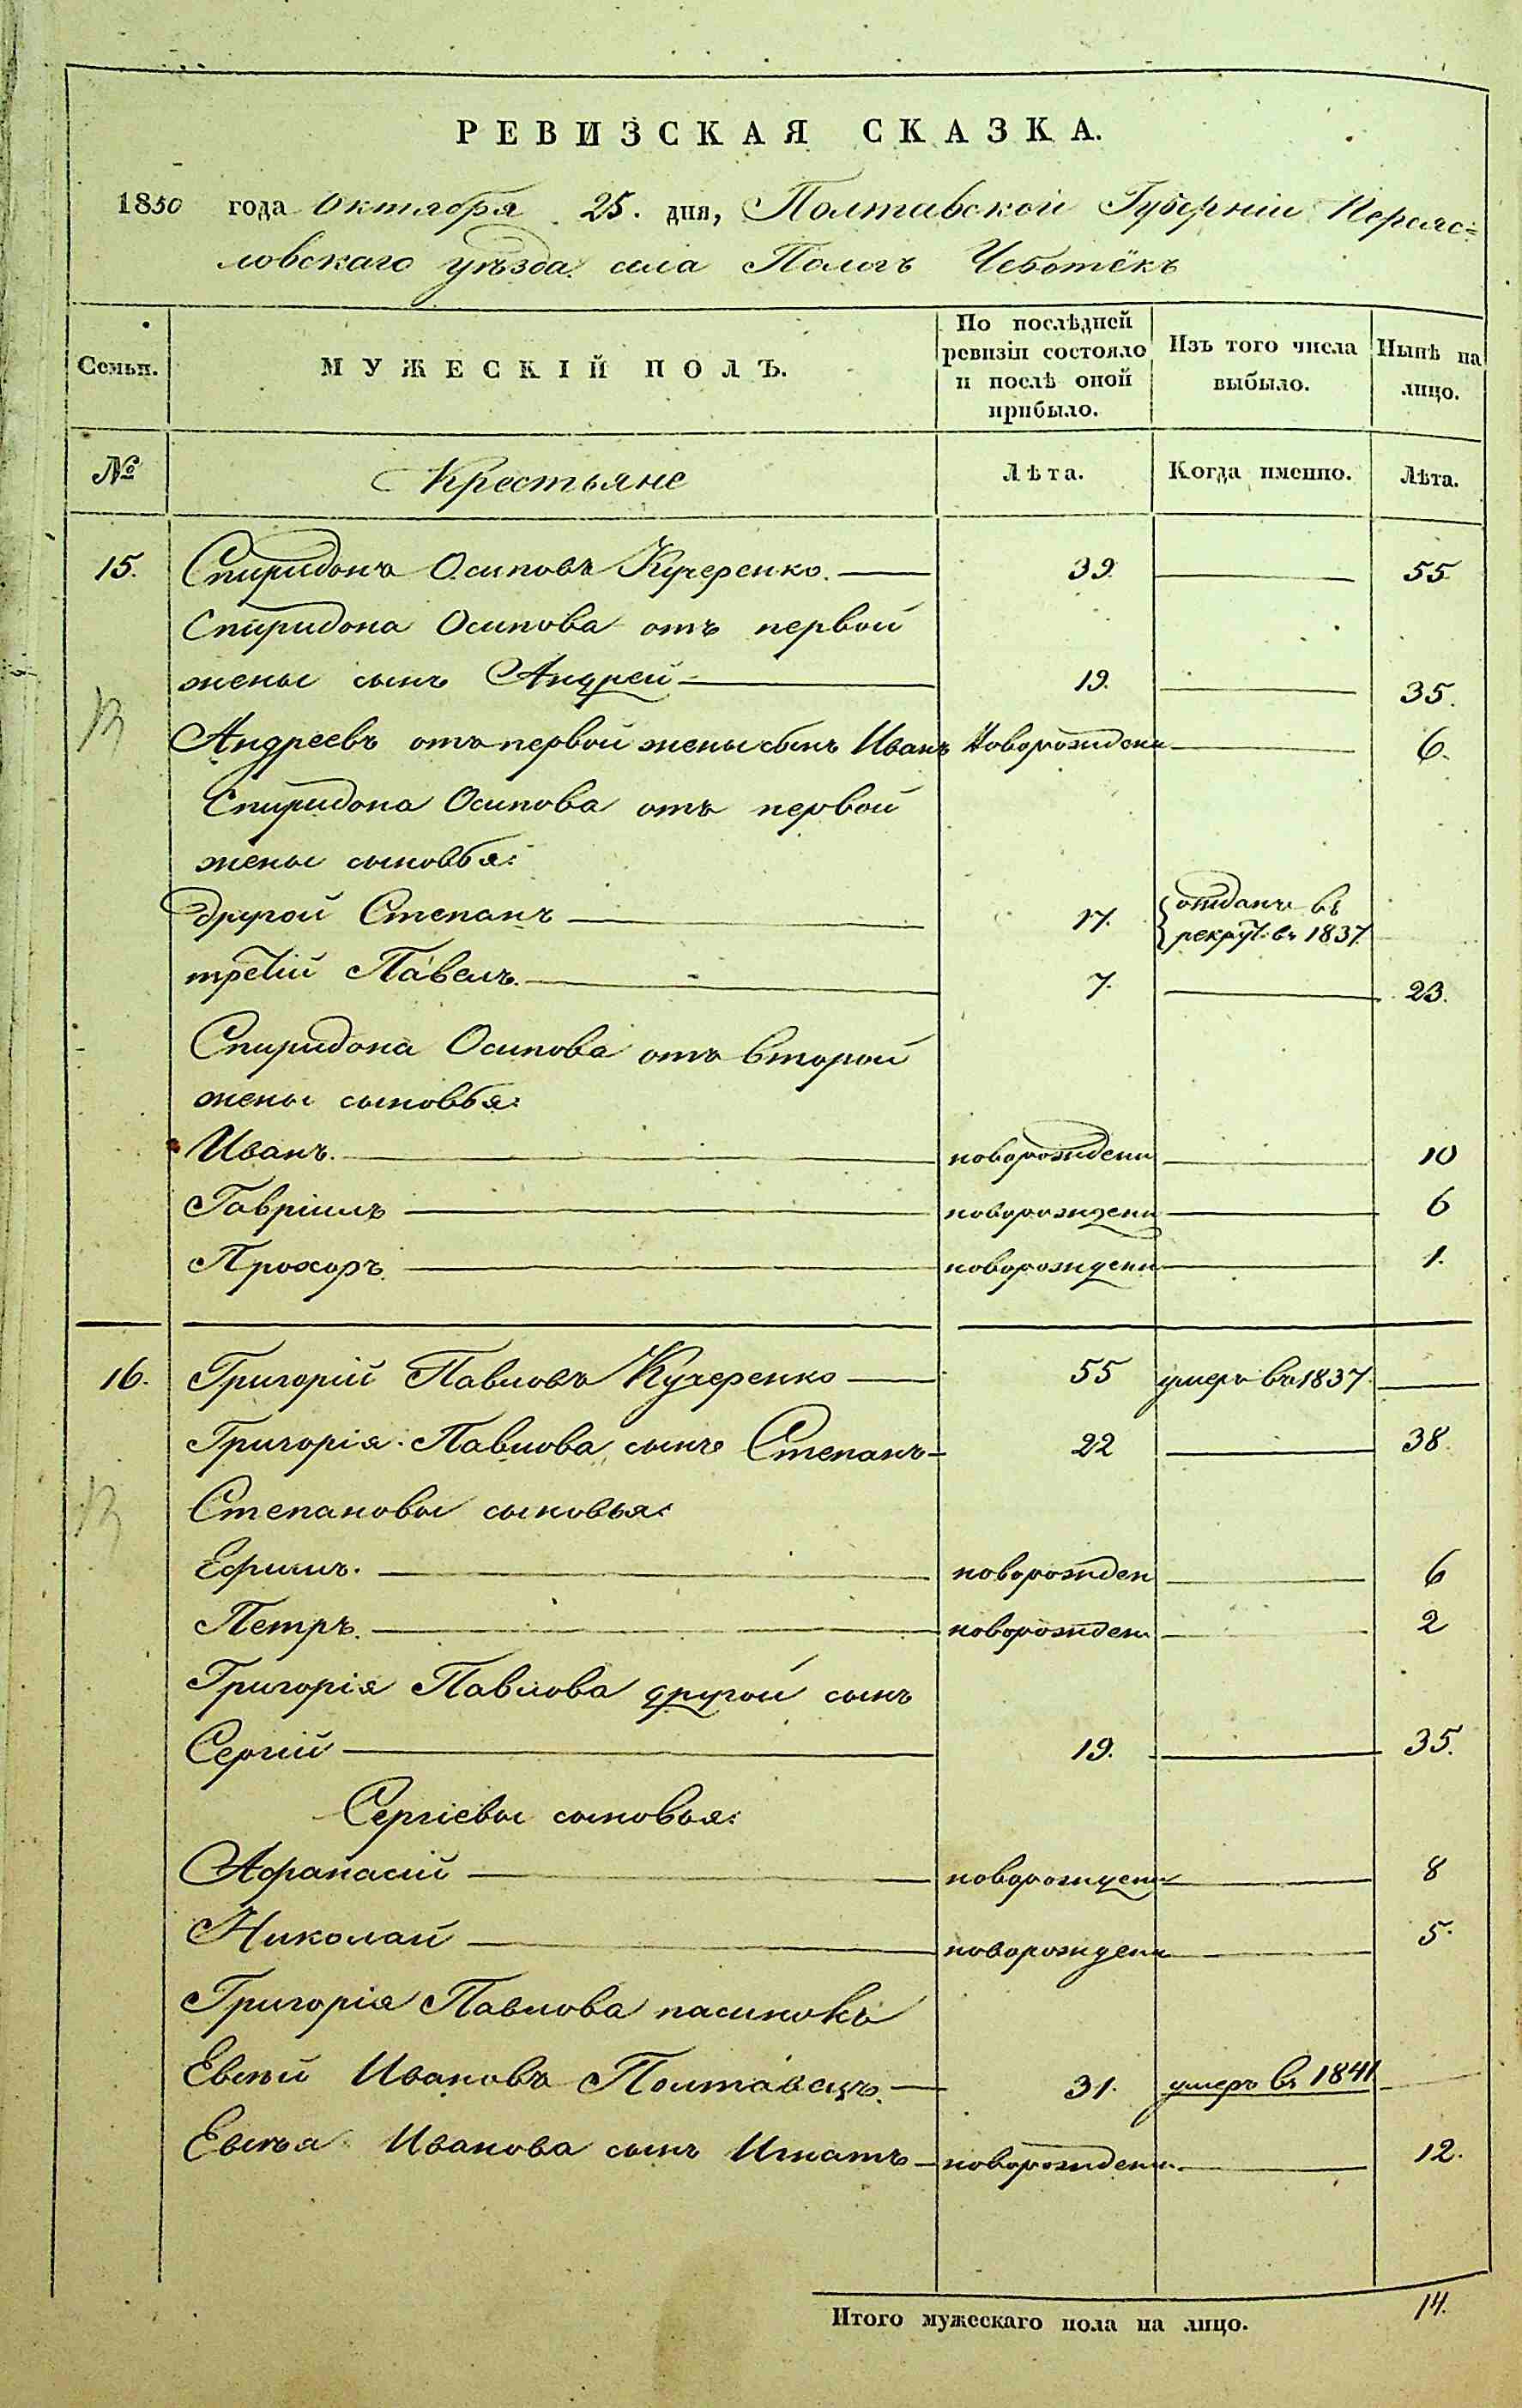 РЕВИЗСКАЯ СКАЗКА.
1850 года Октября 25. дня, Полтавской Губерніи Переяс=
ловскаго уѣзда села Пологъ Чеботёкъ
Семьи.
МУЖЕСКІЙ ПОЛЪ.
По послѣдней ревизіи состояло и послѣ оной прибыло.
Изъ того числа выбыло.
Нынѣ на лицо.
№
Крестьяне
Лѣта.
Когда именно.
Лѣта.
15. Спиридонъ Осиповъ Кучеренко. 39. 55.
Спиридона Осипова отъ первой
жены сынъ Андрей 19. 35.
Андреевъ отъ первой жены сынъ Иванъ Новорожденн 6.
Спиридона Осипова отъ первой
жены сыновья:
другой Степанъ 17. отданъ въ рекрут: въ 1837.
третій Павелъ. 7. 23.
Спиридона Осипова отъ второй
жены сыновья:
Иванъ. новорожденн 10
Гавріилъ новорожденн 6
Прохоръ. новорожденн 1.
16. Григорій Павловъ Кучеренко 55 умеръ въ 1837.
Григорія Павлова сынъ Степанъ 22 38.
Степановы сыновья:
Ефимъ. новорожден 6
Петръ. новорожден 2
Григорія Павлова другой сынъ
Сергій 19. 35.
Сергіевы сыновья:
Афанасій новорожденн 8
Николай новорожденн 5.
Григорія Павлова пасинокъ
Евсѣй Ивановъ Полтавецъ. 31. умеръ въ 1841
Евсѣя Иванова сынъ Игнатъ новорожденн. 12.
Итого мужескаго пола на лицо. 14.